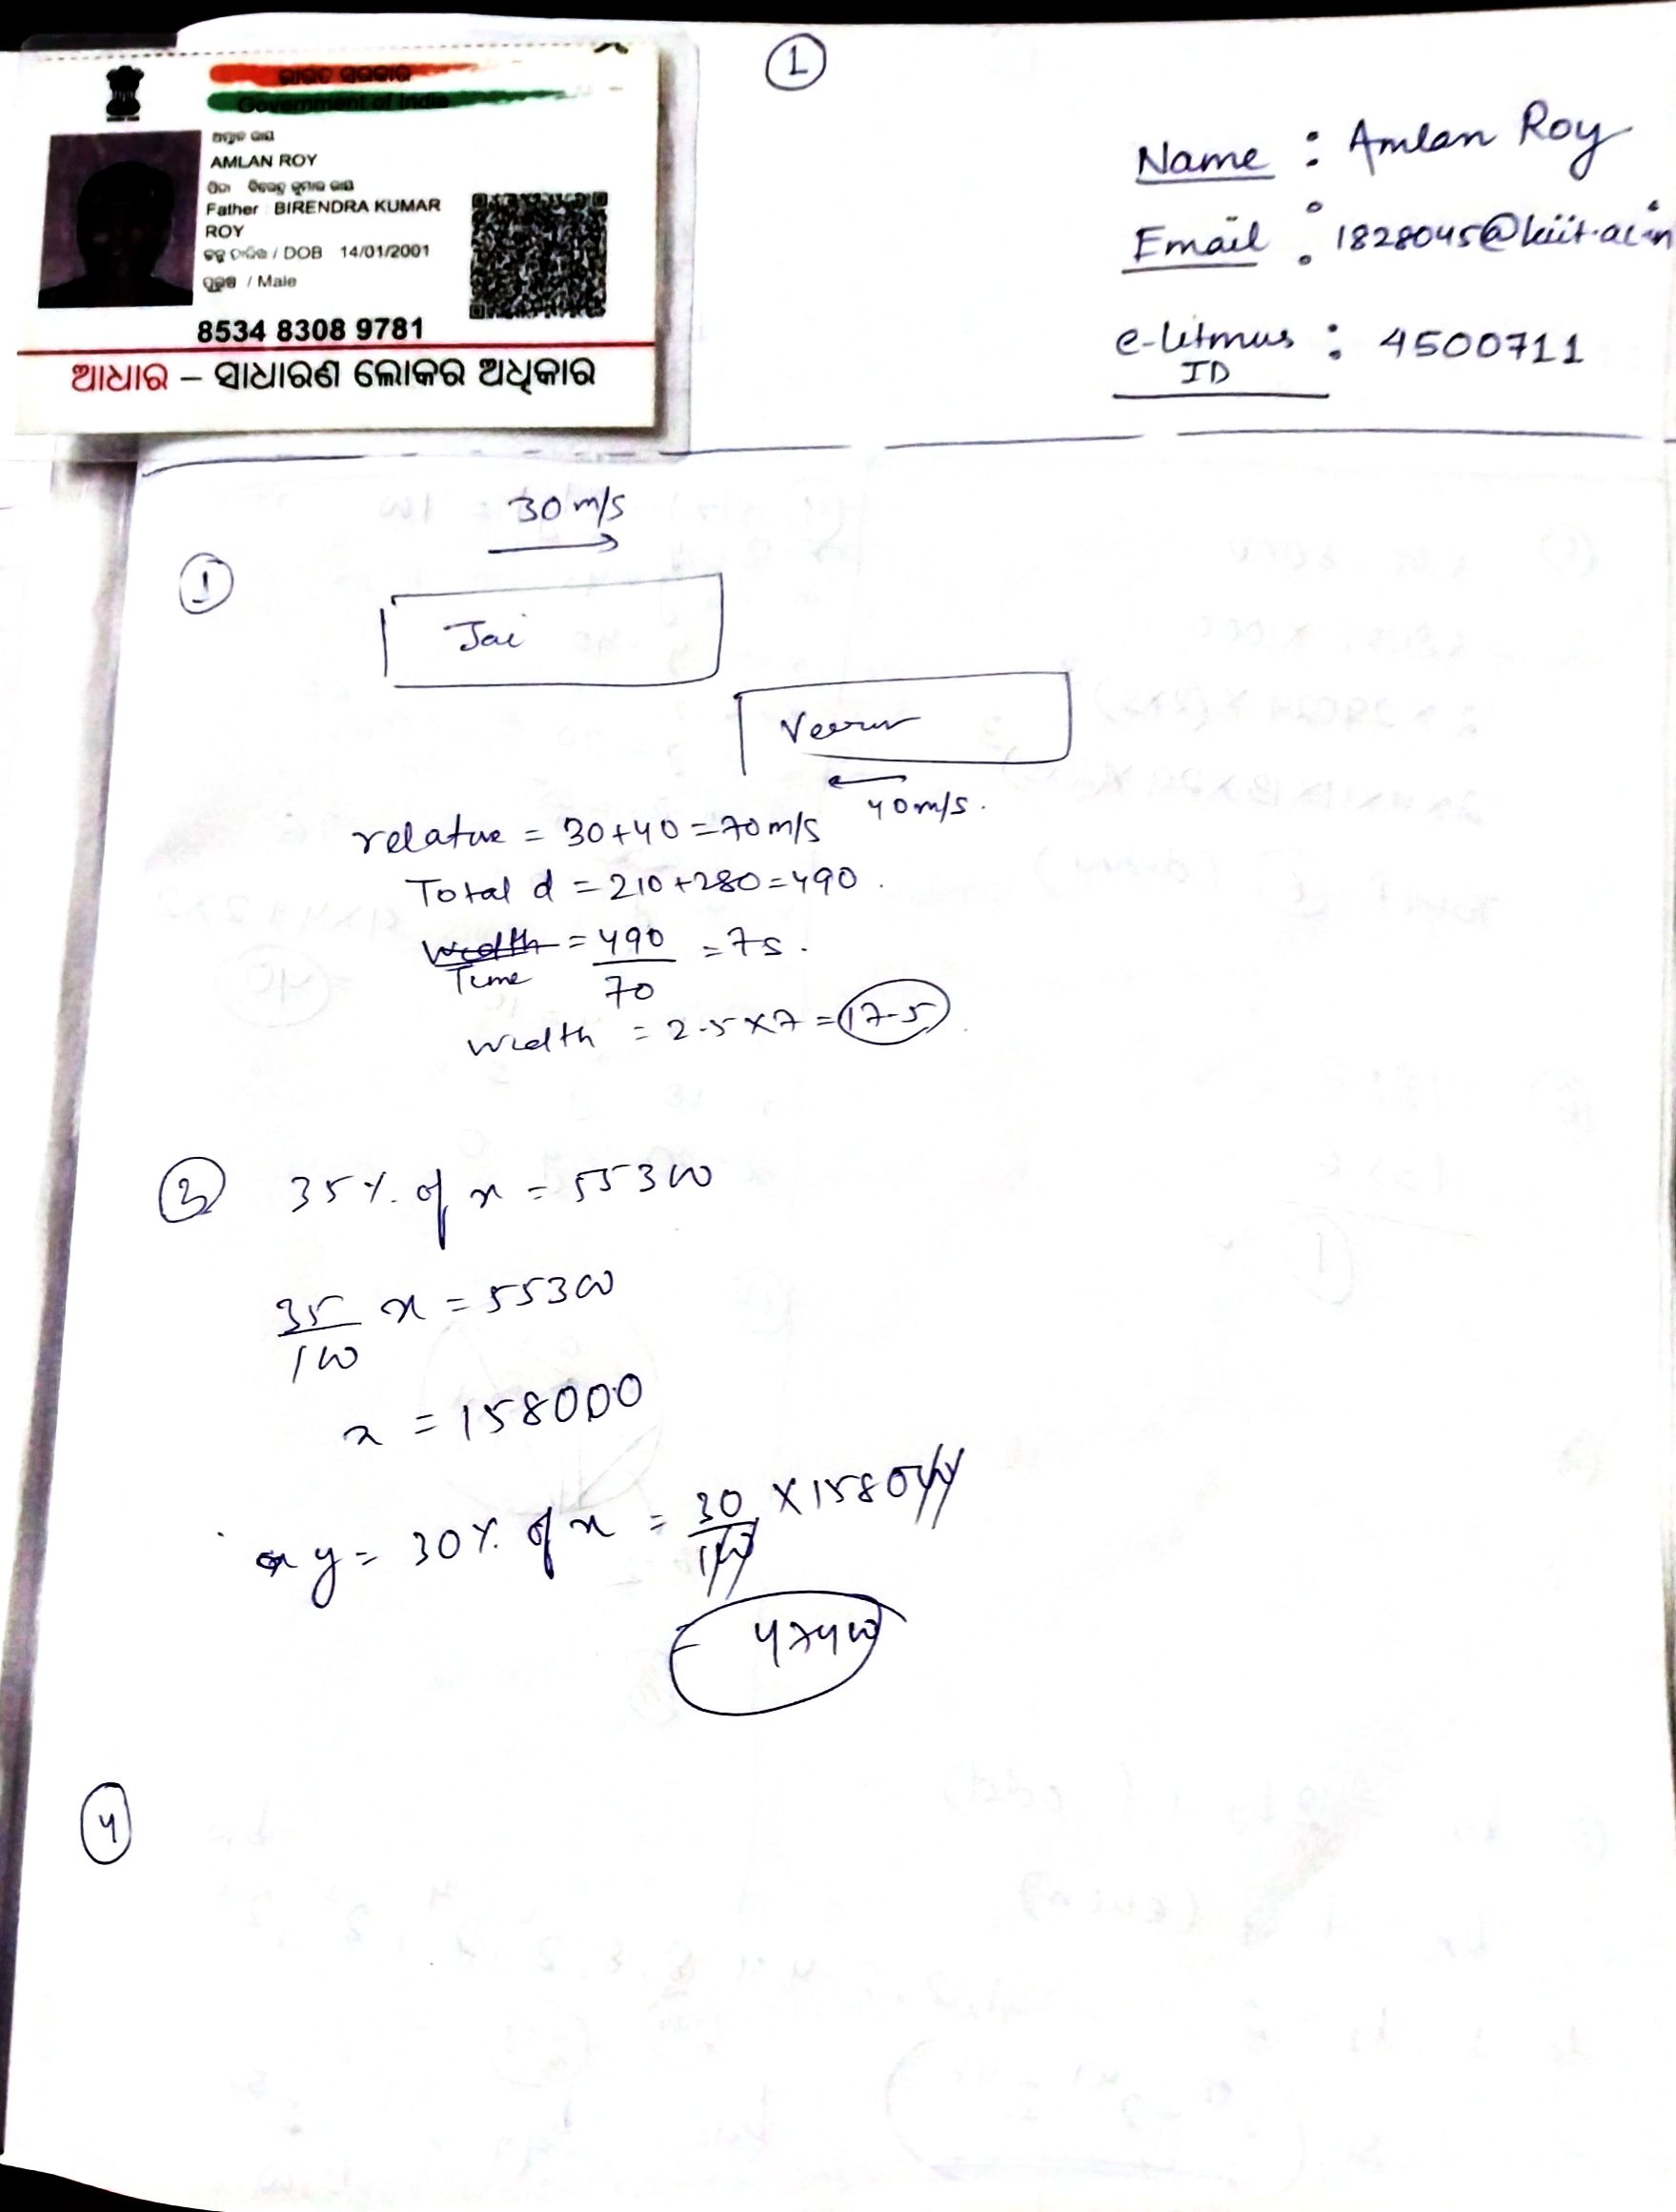 ①
ଭାରତ ସରକାର
Government of India
AMLAN ROY
Father : BIRENDRA KUMAR
ROY
/ DOB 14/01/2001
ପୁରୁଷ / Male
8534 8308 9781
ଆଧାର – ସାଧାରଣ ଲୋକର ଅଧିକାର
Name : Amlan Roy
Email : 1828045@kiit.ac.in
e-litmus : 4500711
ID
30 m/s
①
Jai
Veeru
40 m/s.
relative = 30+40=70 m/s
Total d = 210+280=490.
Width = 490/70 = 7s.
Time
Width = 2.5×7 = 17.5
③ 35% of x = 55300
35/100 x = 55300
x = 158000
y = 30% of x = 30/100 × 158000
= 47400
④